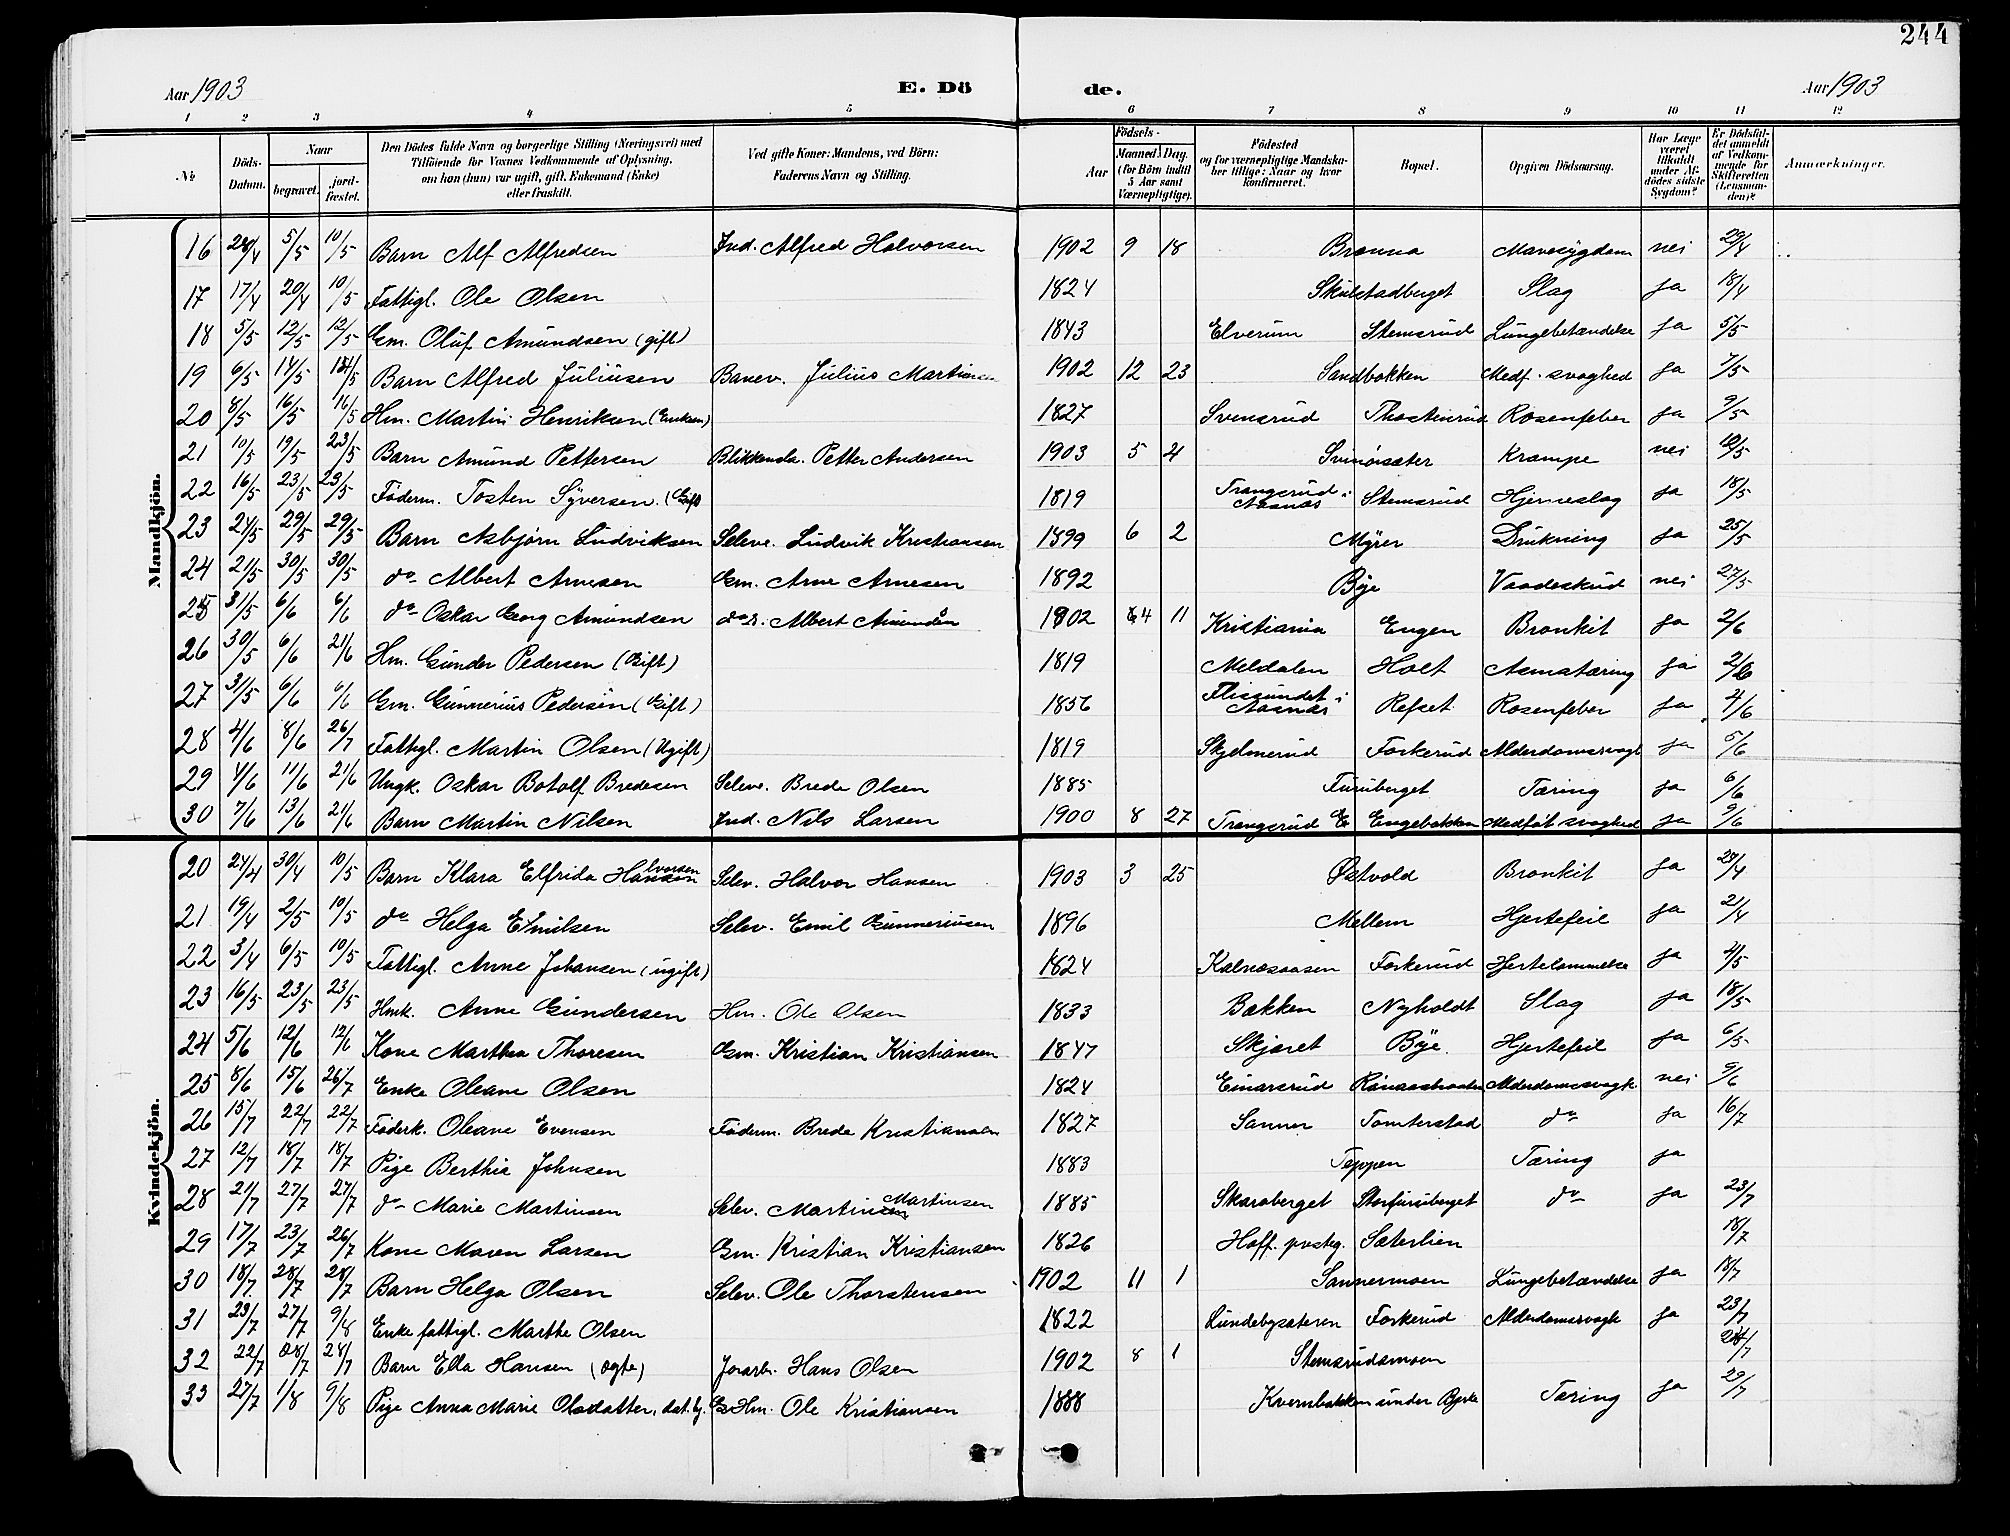 244
Aar 1903
E. Dö
de.
Aar 1903
1 2 3 4 5 6 7 8 9 10 11 12
№
Döds-Datum.
Naar begravet. jordfæstet.
Den Dödes fulde Navn og borgerlige Stilling (Næringsvei) med Tilföiende for Voxnes Vedkommende af Oplysning, om han (hun) var ugift, gift, Enkemand (Enke) eller fraskilt.
Ved gifte Koner: Mandens, ved Börn: Faderens Navn og Stilling.
Födsels-
Aar
Maaned. Dag. (for Börn indtil 5 Aar samt Værnepligtige).
Födested og for værnepligtige Mandskaber tillige: Naar og hvor konfirmeret.
Bopæl.
Opgiven Dödsaarsag.
Har Læge været tilkaldt under Afdödes sidste Sygdom?
Er Dödsfaldet anmeldt af Vedkommende for Skifteretten (Lensmanden)?
Anmærkninger.
Mandkjön.
16 28/4 5/5 10/5 Barn Alf Alfredsen Ind. Alfred Halvorsen 1902 9 18 Bronna Mavesygdom nei 29/4
17 17/4 20/4 10/5 Fattigl. Ole Olsen 1824 Skulstadberget Slag ja 18/4
18 5/5 12/5 12/5 Gm. Oluf Amundsen (gift) 1843 Elverum Stemsrud Lungebetændelse ja 5/5
19 6/5 14/5 14/5 Barn Alfred Juliusen Banev. Julius Martinsen 1902 12 23 Sandbakken Medf. svaghed ja 7/5
20 8/5 16/5 16/5 Hm. Martin Henriksen (Enkem) 1827 Svensrud Thostenrud Rosenfeber ja 9/5
21 10/5 19/5 23/5 Barn Amund Pettersen Blikkensl. Petter Andersen 1903 5 4 Svinoisæter Krampe nei 12/5
22 16/5 23/5 23/5 Föderm. Tosten Syversen (Gift) 1819 Trangsrud i Aasnæs Stemsrud Hjerneslag ja 18/5
23 24/5 29/5 29/5 Barn Asbjørn Ludviksen Selve. Ludvik Kristiansen 1899 6 2 Myrer Drukning ja 25/5
24 21/5 30/5 30/5 do Albert Arnesen Gm. Arne Arnesen 1892 Bye Vaadeskud nei 27/5
25 31/5 6/6 6/6 do Oskar Georg Amundsen Albert Amundsen 1902 4 11 Kristiania Engen Bronkit ja 2/6
26 30/5 6/6 21/6 Hm. Gunder Pedersen (Gift) 1819 Meldalen Holt Asmatæring ja 2/6
27 31/5 6/6 6/6 Gm. Gunnerius Pedersen (Gift) 1856 Flissundet i Aasnæs Refset Rosenfeber ja 4/6
28 4/6 8/6 26/7 Fattigl. Martin Olsen (Ugift) 1819 Skjelmerud Forkerud Alderdomssvagh ja 5/6
29 4/6 11/6 21/6 Ungk. Oskar Botolf Bredesen Selve. Brede Olsen 1885 Furuberget Tæring ja 6/6
30 7/6 13/6 21/6 Barn Martin Nilsen Ind. Nils Larsen 1900 8 27 Trangsrud Engebakken Medfødt svaghed ja 9/6
Kvindekjön.
20 24/4 30/4 10/5 Barn Klara Elfrida Halvorsen Selev. Halvor Hansen 1903 3 25 Østvold Bronkit ja 28/4
21 19/4 2/5 10/5 do Helga Emilsen Selev. Emil Gunneriusen 1896 Mellem Hjertefeil ja 21/4
22 3/4 6/5 10/5 Fattigl. Anne Johansen (ugift) 1824 Kalnæsaasen Forkerud Hjertelammelse ja 4/5
23 16/5 23/5 23/5 Hmk. Anne Gundersen Hm. Ole Olsen 1833 Bakken Nyholdt Slag ja 18/5
24 5/6 12/6 12/6 Kone Marthea Thoresen Gm. Kristian Kristiansen 1847 Skjæret Bye Hjertefeil ja 6/5
25 8/6 15/6 26/7 Enke Oleane Olsen 1824 Einarsrud Alderdomssvagh nei 9/6
26 15/7 22/7 22/7 Föderk. Oleane Evensen Föderm. Brede Kristiansen 1827 Sanner Tomterstad do ja 16/7
27 12/7 18/7 18/7 Pige Berthe Johnsen 1883 Teppen Tæring ja
28 21/7 27/7 27/7 do Marie Martinsen Selev. Martin Martinsen 1885 Skaraberget Storfuruberget do ja 23/7
29 17/7 23/7 26/7 Kone Maren Larsen Gm. Kristian Kristiansen 1826 Hoff. prstg. Sæterlien 18/7
30 18/7 28/7 28/7 Barn Helga Olsen Selev. Ole Thorstensen 1902 11 1 Sannermoen Lungebetændelse ja 18/7
31 23/7 27/7 9/8 Enke fattigl. Marthe Olsen 1822 Lundebysæteren Forkerud Alderdomssvagh ja 23/7
32 22/7 28/7 28/7 Barn Ella Hansen (ægte) Jorarb. Hans Olsen 1902 8 1 Stemsrudsmoen 24/7
33 27/7 1/8 9/8 Pige Anna Marie Olsdatter, Hm. Ole Kristiansen 1888 Kvernbakken under Tæring ja 29/7